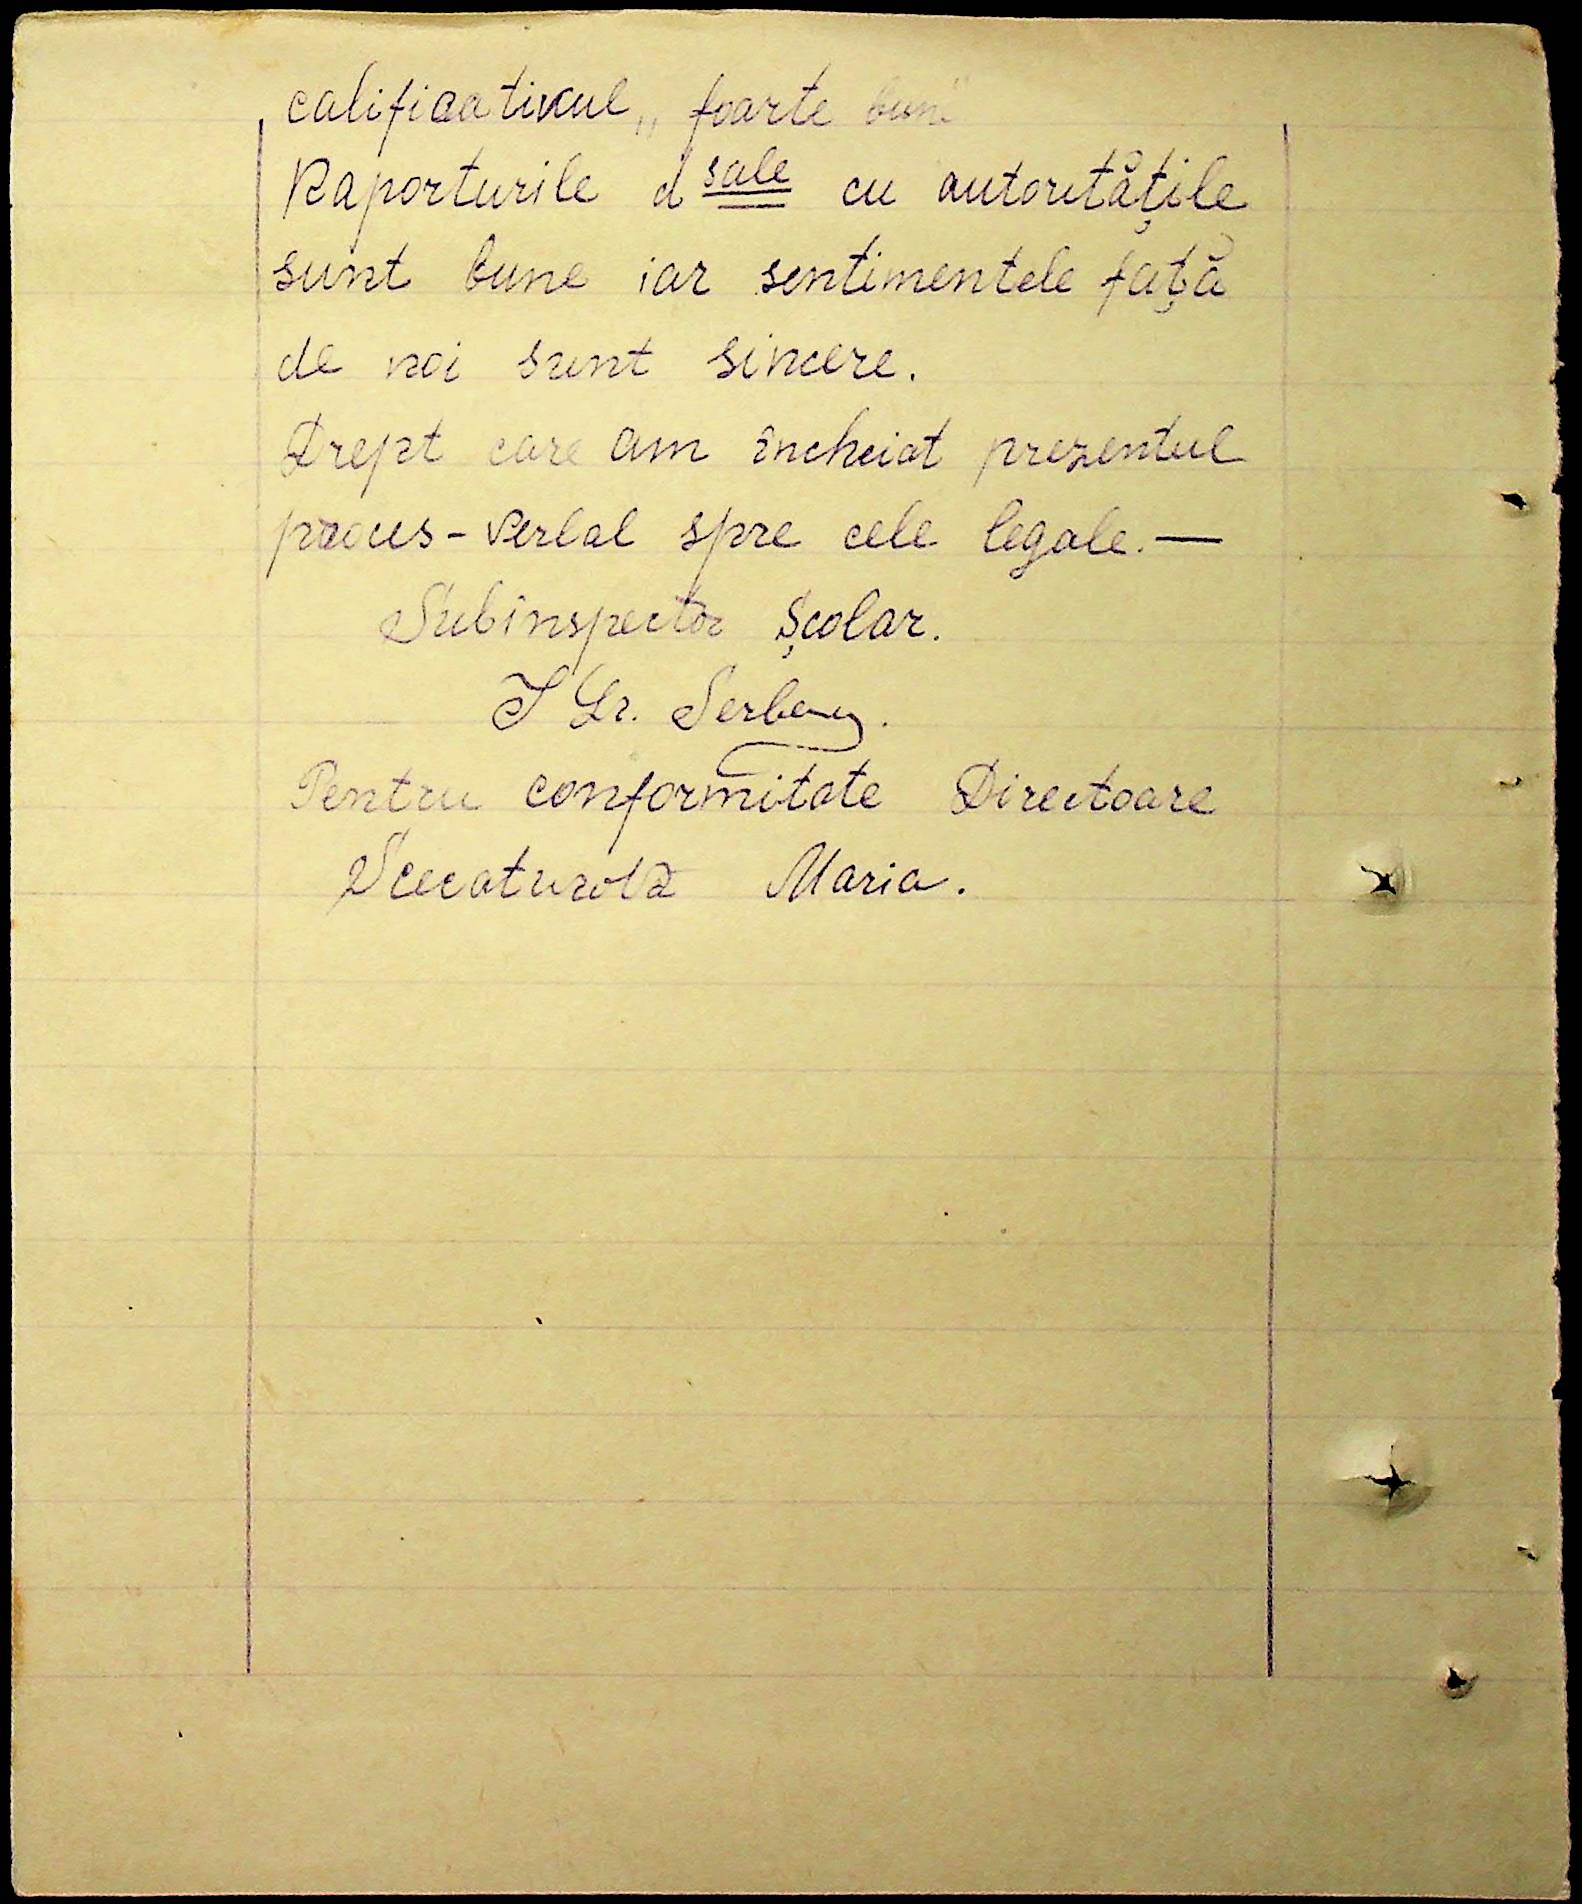 calificativul „foarte bun"
Raporturile d sale cu autoritățile
sunt bune iar sentimentele față
de noi sunt sincere.
Drept care am încheiat prezentul
proces-verbal spre cele legale.—
Subinspector Școlar.
I Gr. Serban.
Pentru conformitate Directoare
Maria.